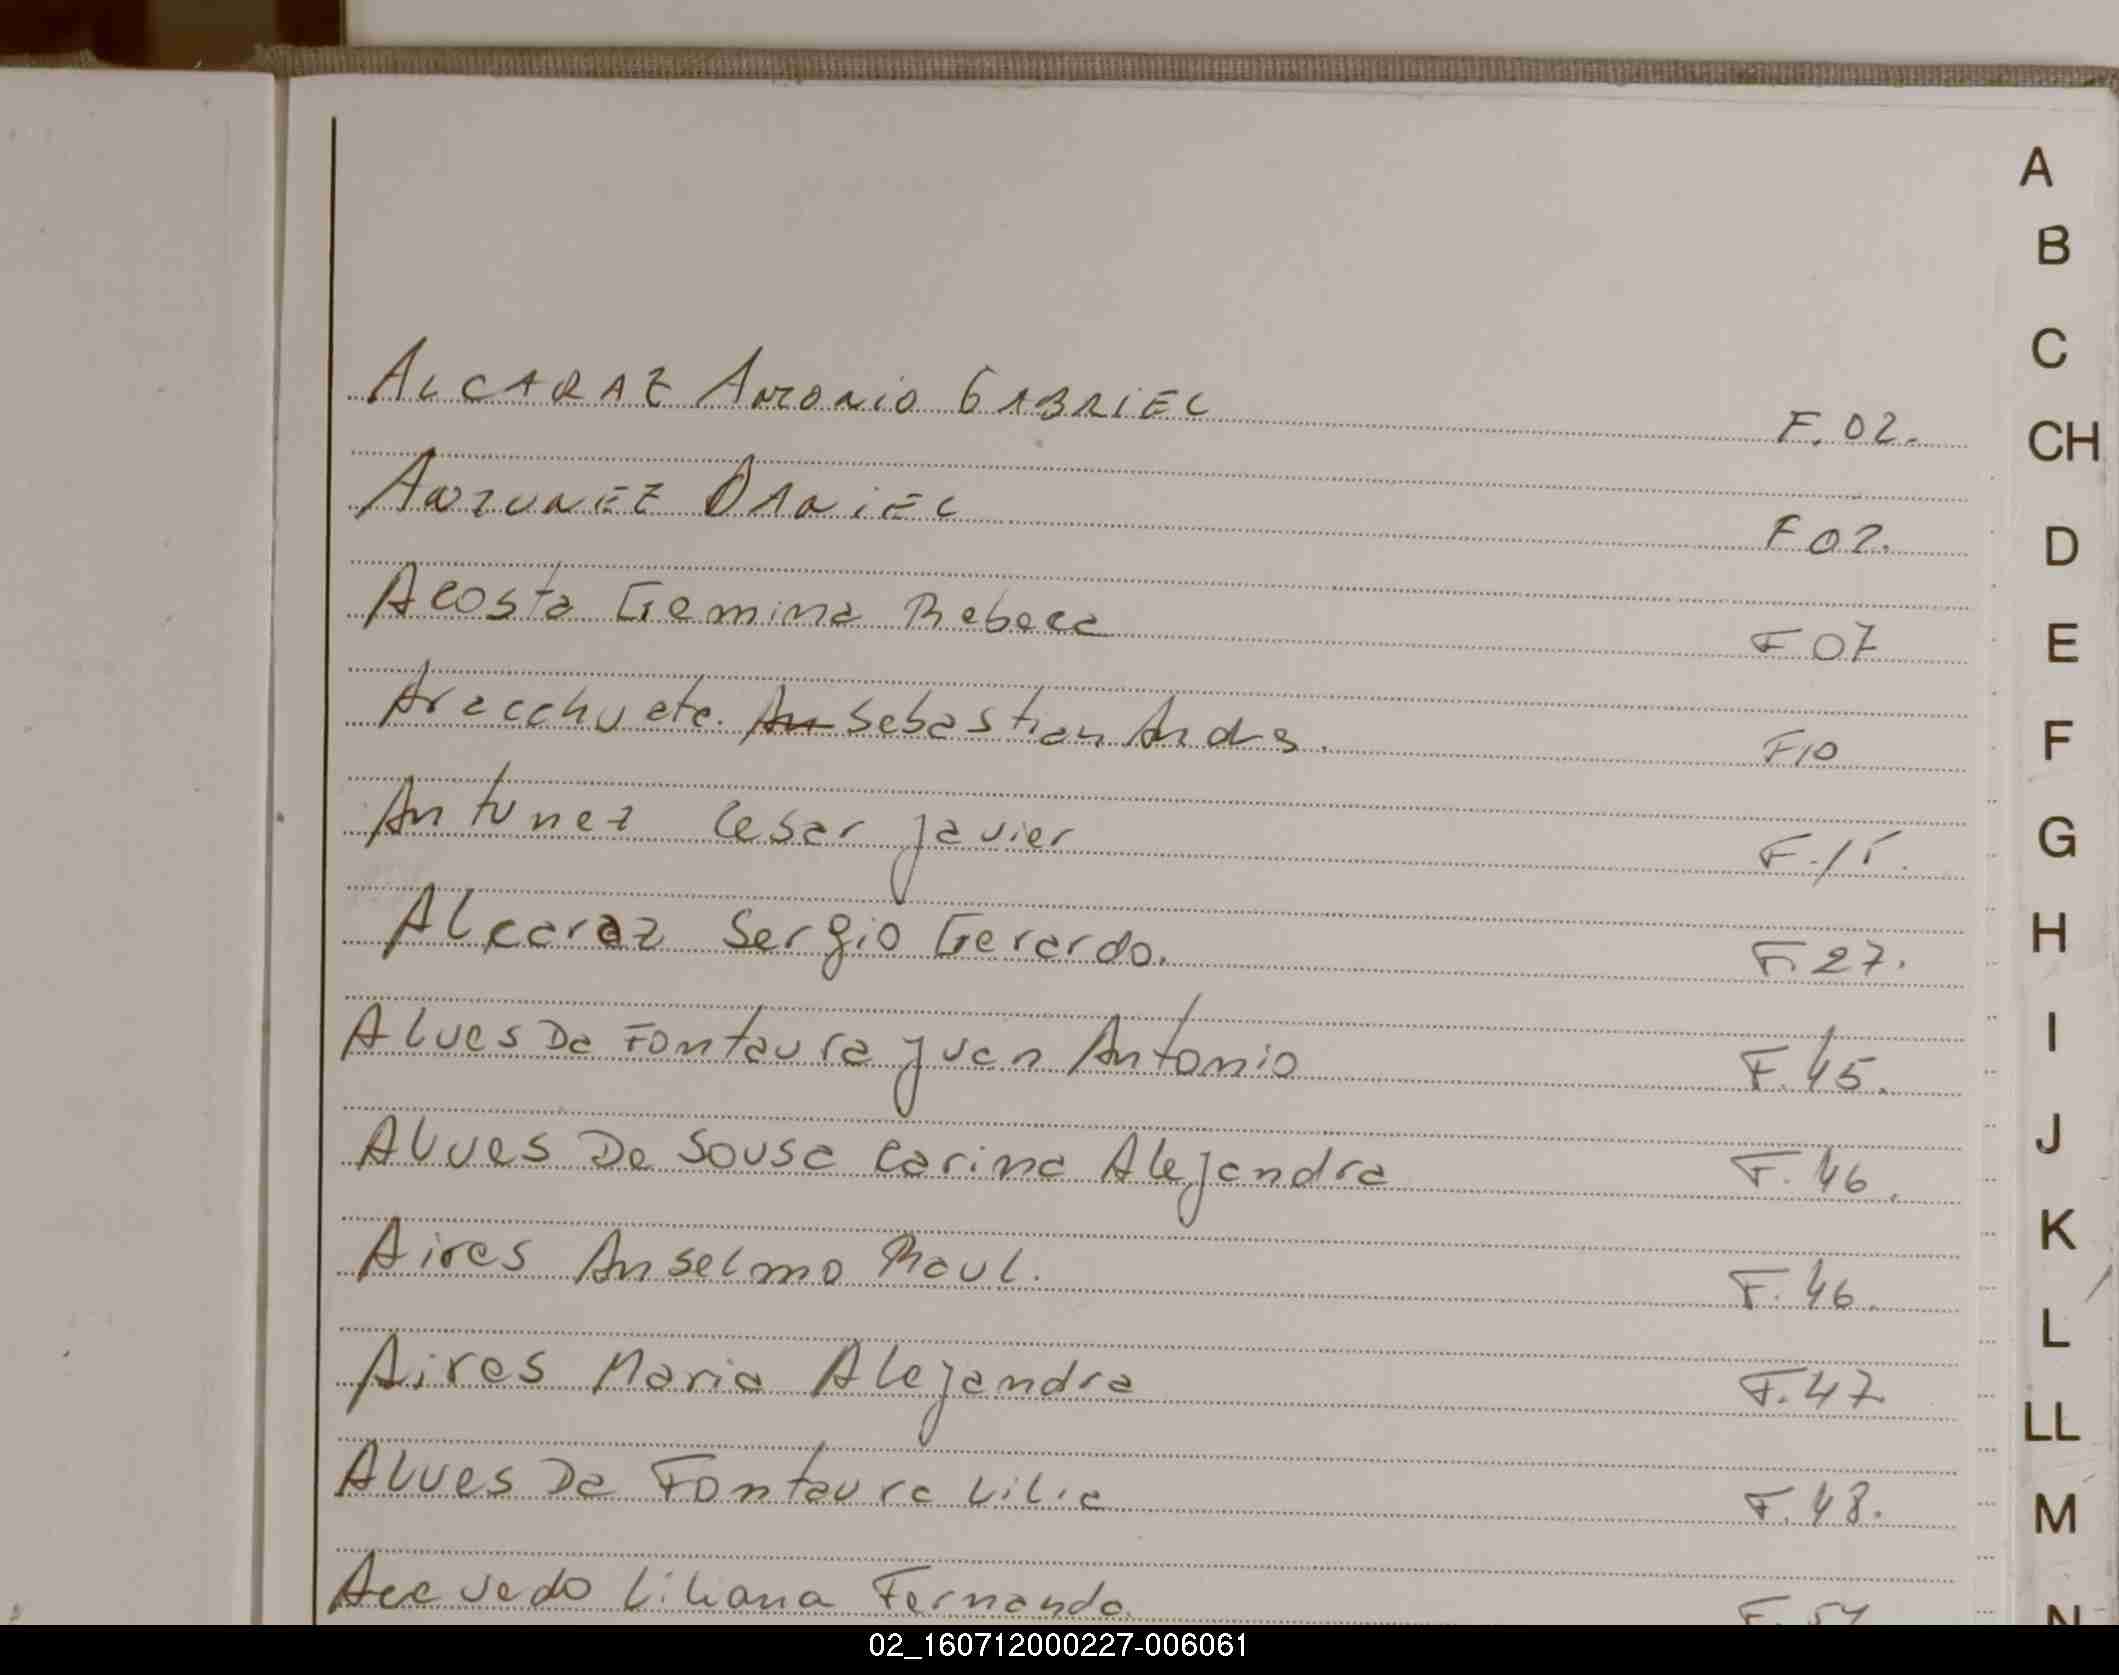 ALCARAZ ANTONIO GABRIEL F.02.
ANTUNEZ DANIEL F02.
Acosta Gemina Rebeca F07
Aracchuete. An Sebastian Andrs. F10
Antunez Cesar Javier F.15.
Alcaraz Sergio Gerardo. F.27.
Alves Da Fontaura Juan Antonio F.45.
Alves De Sousa Carina Alejandra F.46.
Aires Anselmo Raul. F.46.
Aires Maria Alejandra F.47
Alves Da Fontaura Lilia F.48.
Acevedo Liliana Fernanda.
A
B
C
CH
D
E
F
G
H
I
J
K
L
LL
M
N
02_160712000227-006061